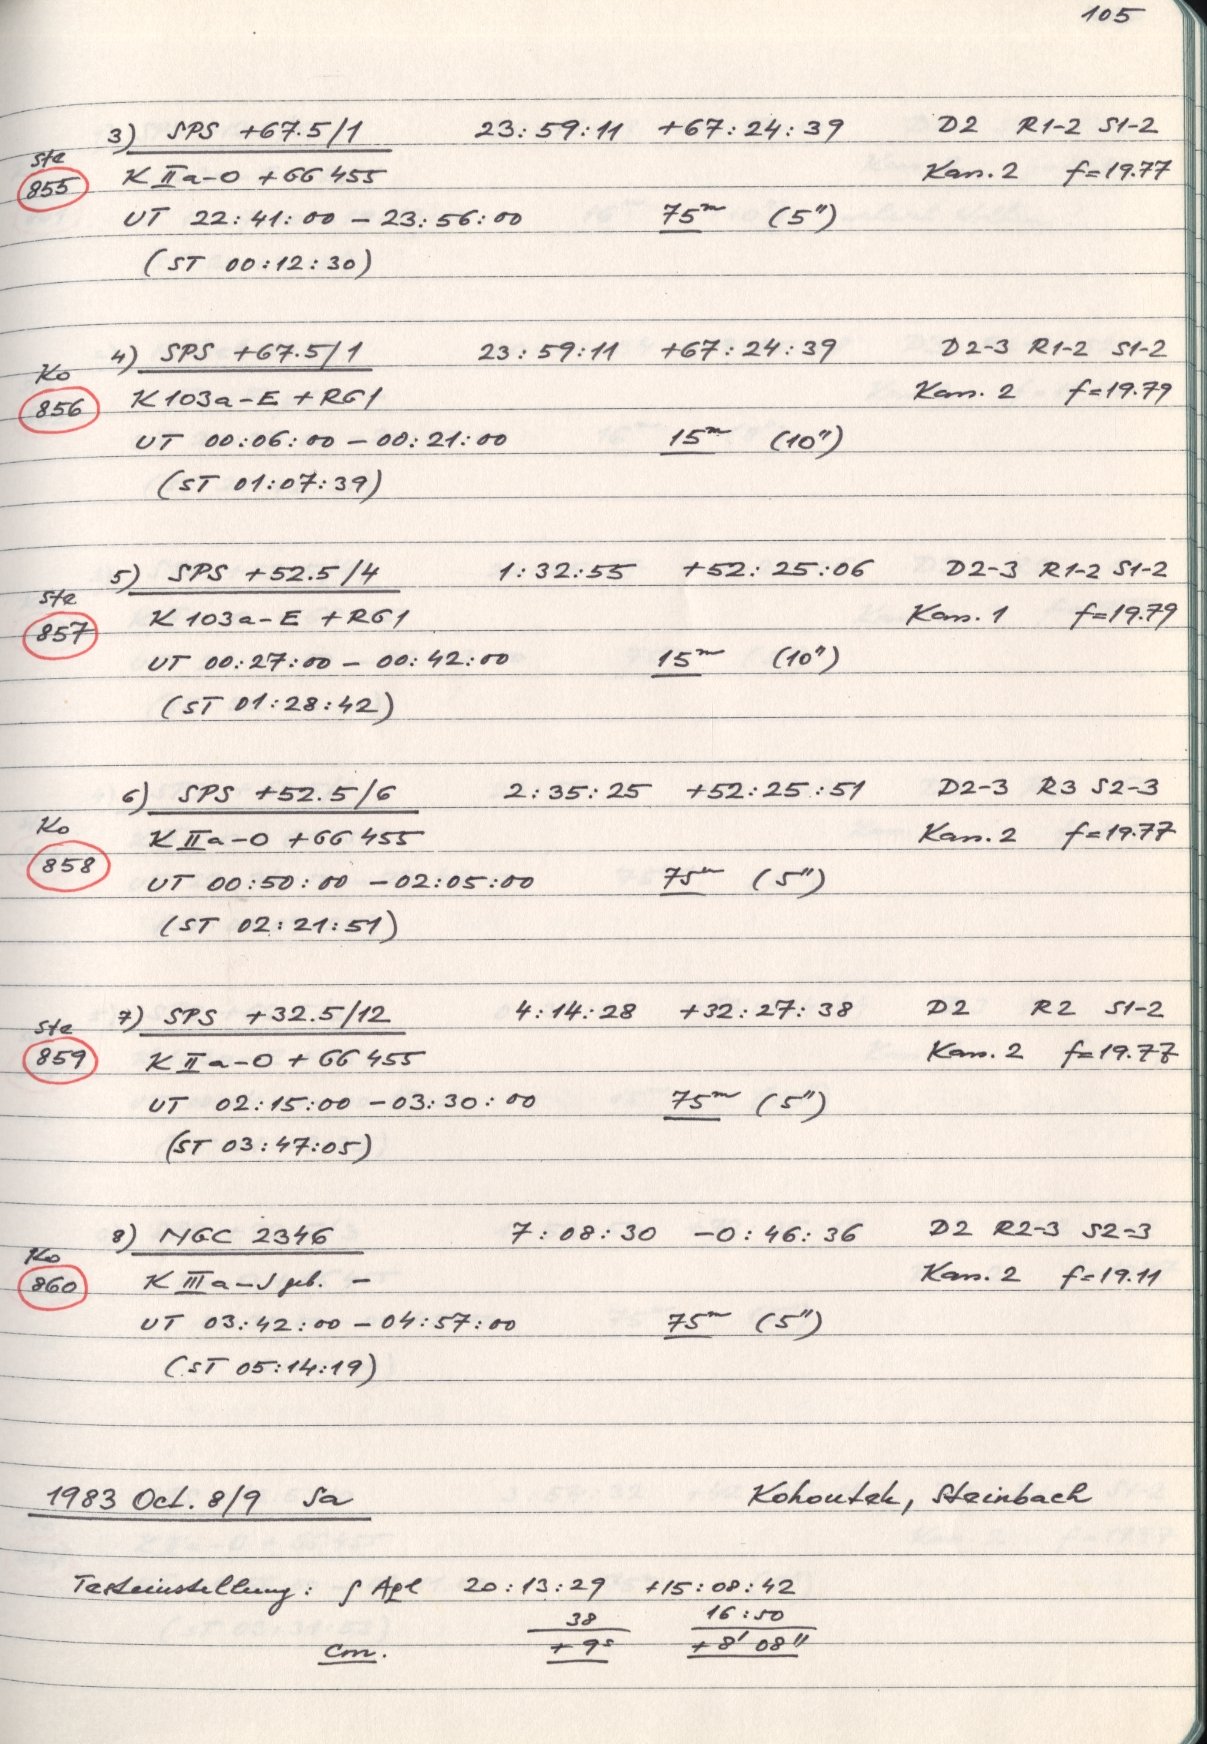 105
3) SPS +67.5/1 23:59:11 +67:24:39 D2 R1-2 S1-2
Ste
855 K IIa-O + GG 455 Kas. 2 f=19.77
UT 22:41:00 - 23:56:00 75m (5")
(ST 00:12:30)
4) SPS +67.5/1 23:59:11 +67:24:39 D2-3 R1-2 S1-2
Ko
856 K 103a-E + RG1 Kas. 2 f=19.79
UT 00:06:00 - 00:21:00 15m (10")
(ST 01:07:39)
5) SPS +52.5/4 1:32:55 +52:25:06 D2-3 R1-2 S1-2
Ste
857 K 103a-E + RG1 Kas. 1 f=19.79
UT 00:27:00 - 00:42:00 15m (10")
(ST 01:28:42)
6) SPS +52.5/6 2:35:25 +52:25:51 D2-3 R3 S2-3
Ko
858 K IIa-O + GG 455 Kas. 2 f=19.77
UT 00:50:00 - 02:05:00 75m (5")
(ST 02:21:51)
7) SPS +32.5/12 4:14:28 +32:27:38 D2 R2 S1-2
Ste
859 K IIa-O + GG 455 Kas. 2 f=19.77
UT 02:15:00 - 03:30:00 75m (5")
(ST 03:47:05)
8) NGC 2346 7:08:30 -0:46:36 D2 R2-3 S2-3
Ko
860 K IIIa-J geb. - Kas. 2 f=19.11
UT 03:42:00 - 04:57:00 75m (5")
(ST 05:14:19)
1983 Oct. 8/9 Sa Kohoutek, Steinbach
Testeinstellung: ζ Aql 20:13:29 +15:08:42
38 16:50
Corr. +9s +8' 08"